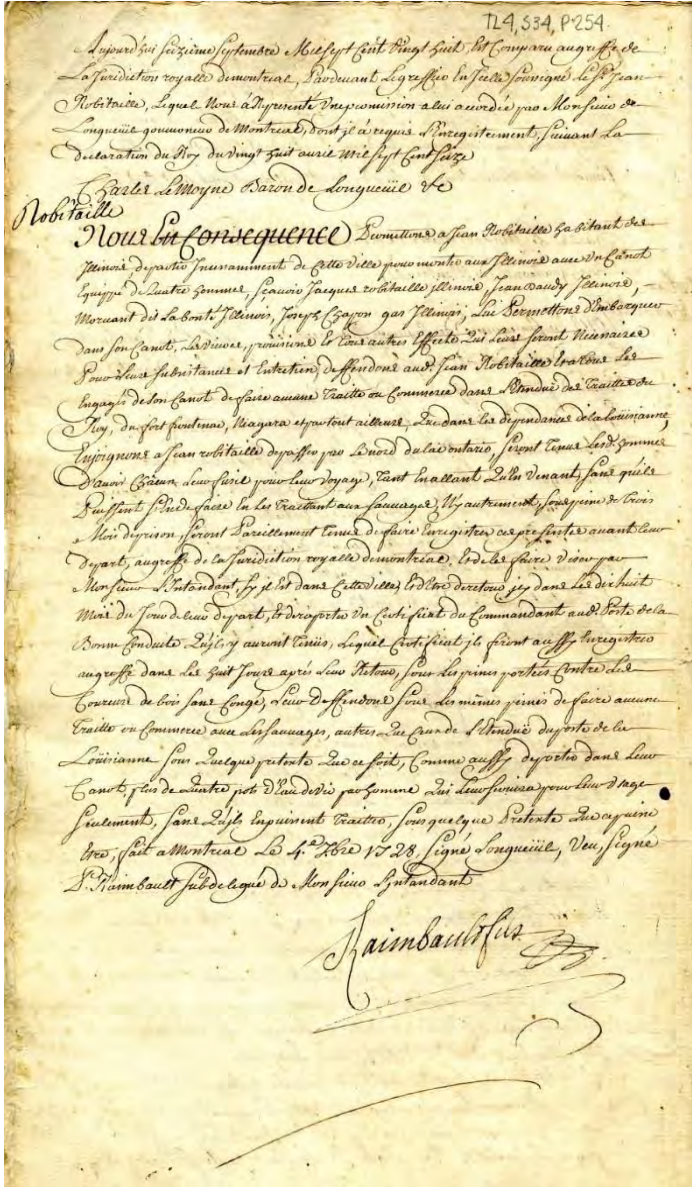 TL4, S34, P254
Aujourd'huy Seizième Septembre Mil Sept Cent Vingt huit, Est Comparu au greffe de
La Juridiction royalle de montréal, Pardevant Le greffier En Icelle Soussigné Le Sr. Jean
Robitaille, Lequel Nous à Représenté Une permission a lui accordée par Monsieur de
Longueüil gouverneur de Montreal, dont jl à requis L'Enregistrement, Suivant La
declaration du Roy du Vingt huit avril Mil Sept Cent Seize
Charles LeMoyne Baron de Longueüil &c
Robitaille
Nous En Consequence Permettons a Jean Robitaille habitant des
Illinois, de partir Incessamment de Cette Ville pour monter aux Illinois avec Un Canot
Equippé de Quatre hommes, Sçavoir Jacques robitaille illinois, Jean Baudy Illinois,
Morvant dit La bonté Illinois, Joseph Chapon gas Illinois, Lui Permettons d'Embarquer
dans Son Canot, Les Vivres, provisions Et tous autres Effects Qui Leurs Seront Necessaires
Pour Leurs Subsistances et Entretien, deffendons aud. Jean Robitaille Et a tous Les
Engagés de Son Canot de faire aucune Traitte ou Commerce dans L'Etendue des Traittes du
Roy, du fort frontenac, Niagara et partout ailleurs, Que dans les dépendances de la Loüisianne,
Enjoignons a Jean robitaille de passer par Le nord du lac ontario, Seront Tenus Lesd. hommes
D'avoir Chacun Leur fusil pour leur Voyage, Tant En allant Qu'En Venant, Sans qu'ils
Puissent S'En defaire En Les Traittant aux Sauvages, Ny autrement, Sous peine de trois
Mois de prison, Seront Pareillement Tenus de faire Enregistrer ces presentes avant leur
Depart, au greffe de La Juridiction royalle de montréal, Et de Les faire Viser par
Monsieur L'Intendant, Sy jl Est dans Cette Ville, Et d'Etre de retour jcy dans Les dix huit
Mois du Jour de leur depart, Et de raporter Un Certificat du Commandant aud. Poste de la
Bonne Conduite Qu'ils y auront Tenüs, Lequel Certificat jls feront aussy Enregistrer
au greffe dans Les huit Jours après Leur Retour, Sous Les peines portées Contre Les
Coureurs de bois Sans Congé, Leur Deffendons Sous Les mêmes peines de faire aucune
Traitte ou Commerce avec Les Sauvages, autres Que Ceux de L'Etenduë du poste de la
Loüisianne Sous Quelque pretexte Que ce Soit, Comme aussy de porter dans Leur
Canot, plus de Quatre pots d'Eau de Vie par homme Qui Leur Servira pour Leur Usage
Seulement, Sans Qu'ils En puissent Traitter, Sous quelque Pretexte Que ce puisse
Etre, fait a Montreal Le 4.e 7bre 1728, Signé Longueüil, Veu, Signé
P. Raimbault Subdelegué de Monsieur L'Intendant
Raimbault fils